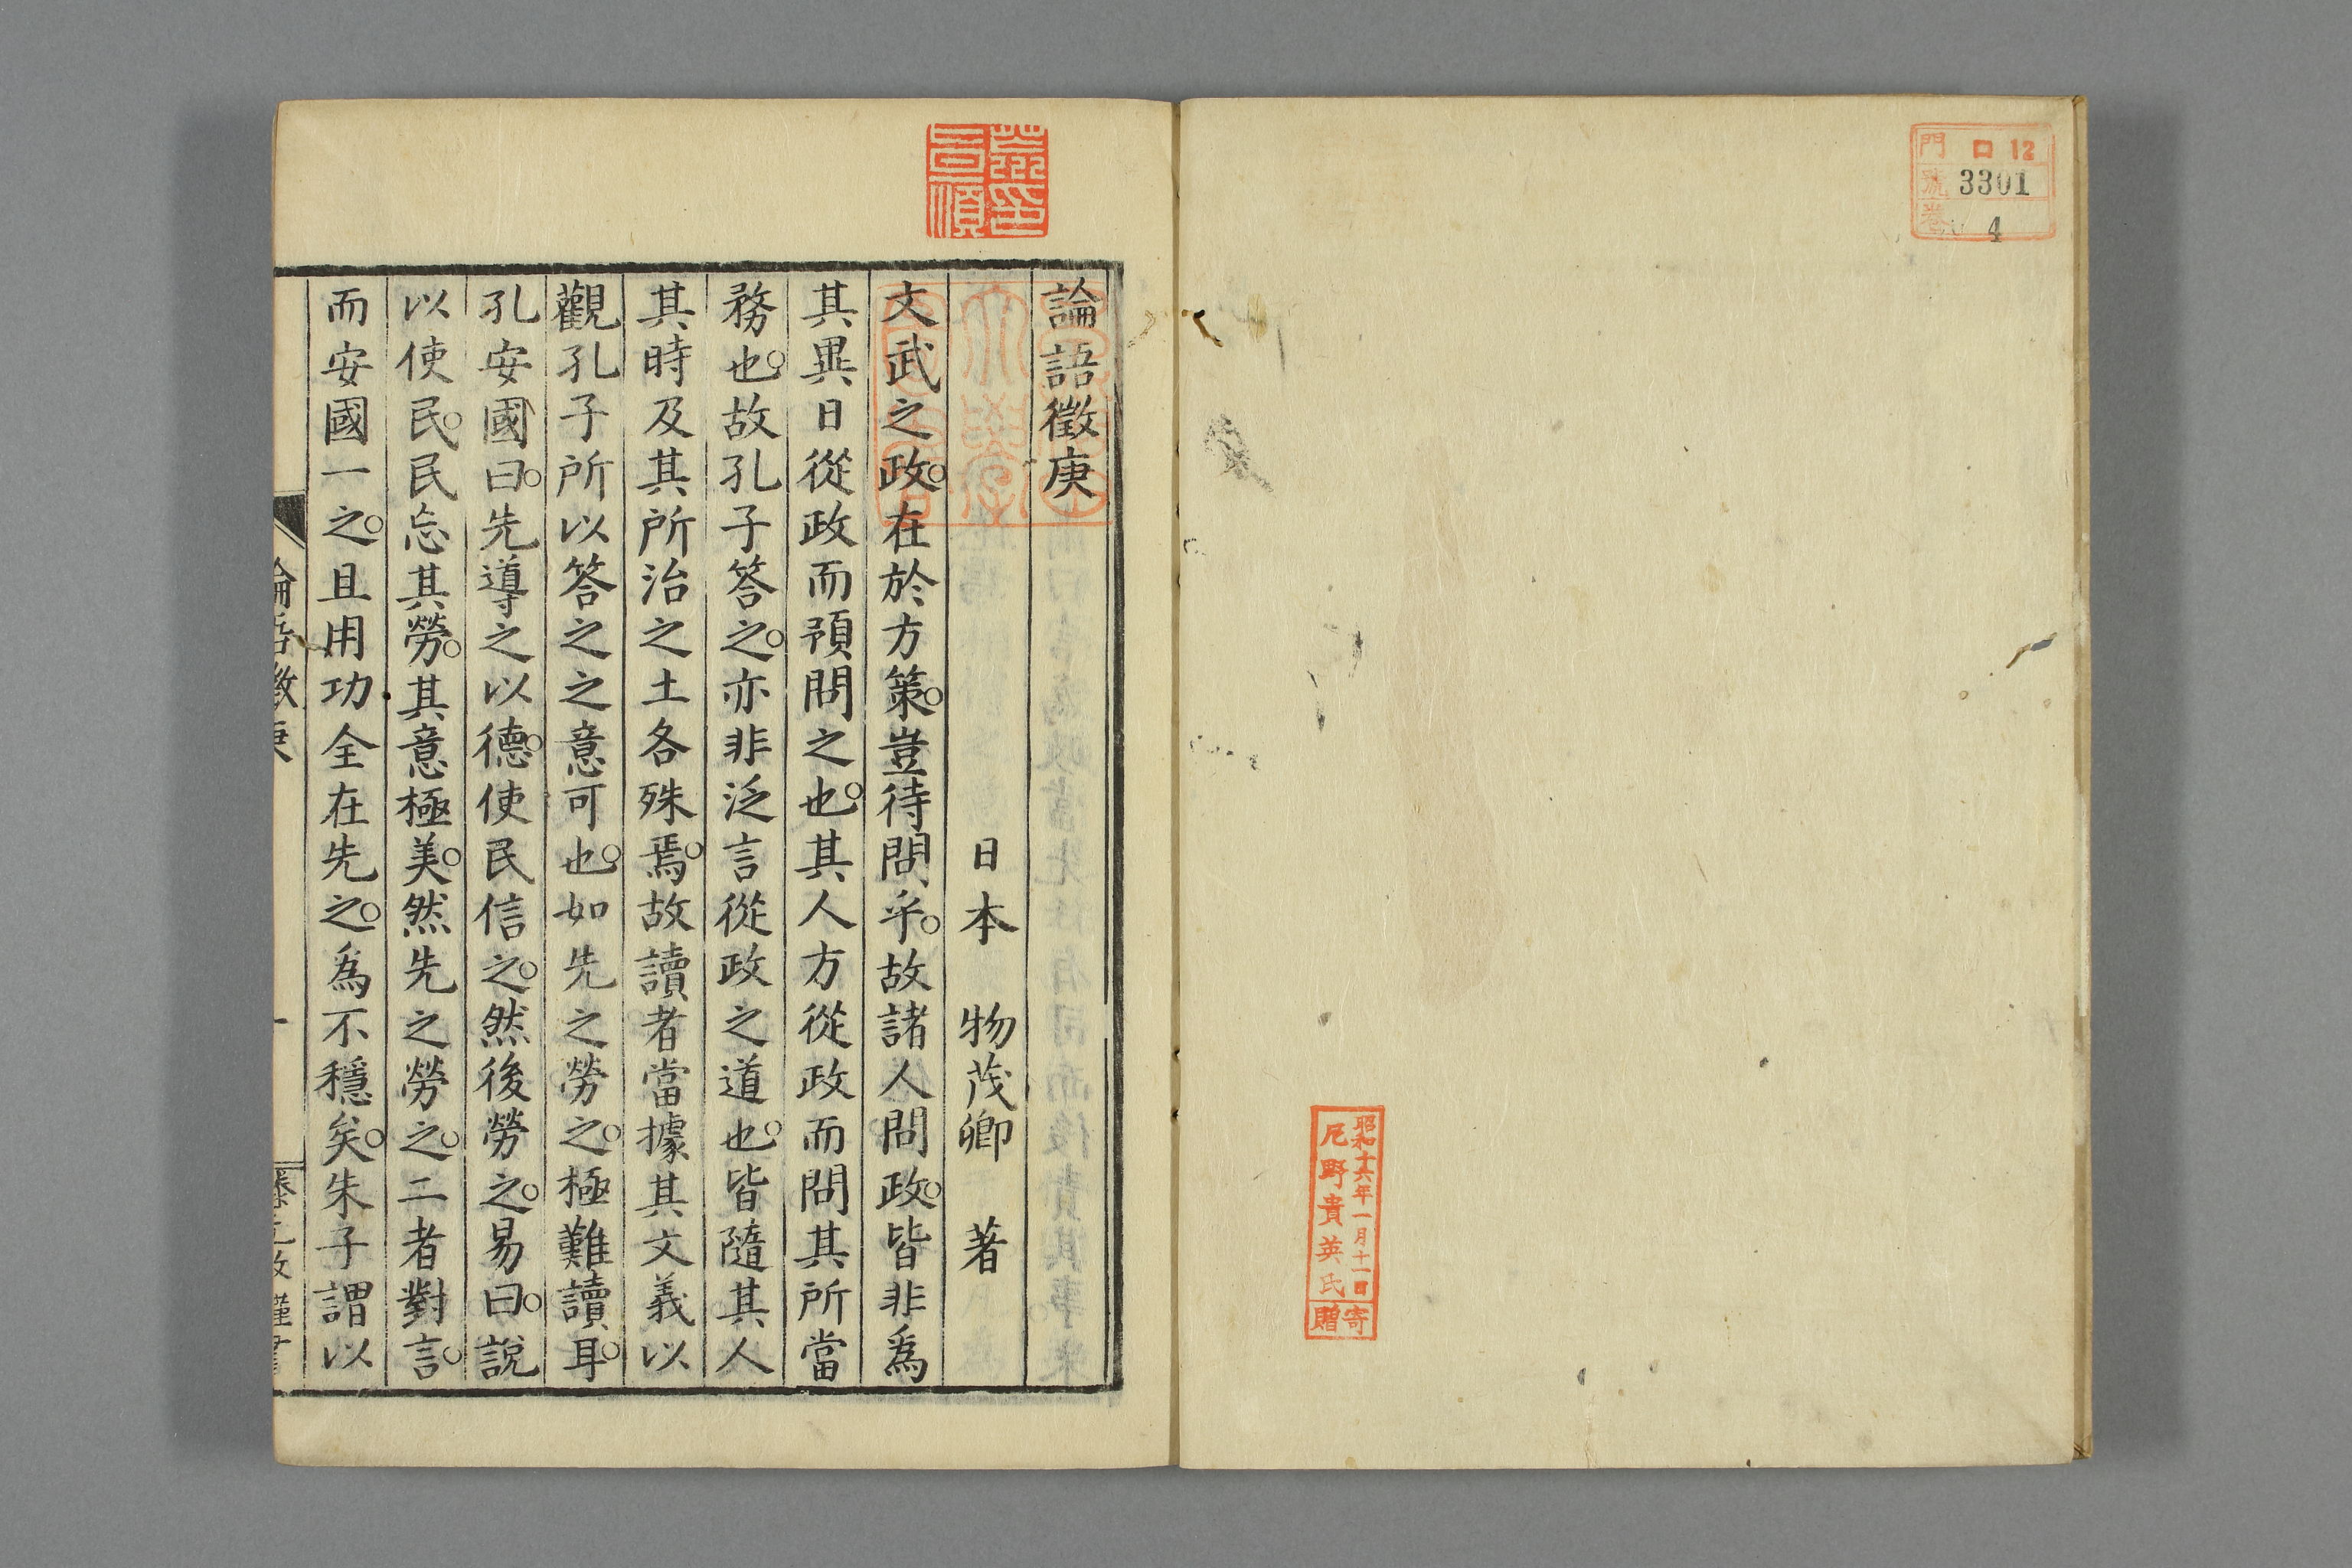 門 ロ 12
號 3301
卷 4
昭和十六年一月十一日
尼野貴英氏
寄贈
論語徵庚
日本 物茂卿 著
文武之政。在於方策。豈待問乎。故諸人問政。皆非爲
其異日從政而預問之也。其人方從政而問其所當
務也。故孔子答之。亦非泛言從政之道也。皆隨其人
其時及其所治之土各殊焉。故讀者當據其文義以
觀孔子所以答之之意可也。如先之勞之。極難讀耳。
孔安國曰。先導之以德。使民信之。然後勞之。易曰。說
以使民。民忘其勞。其意極美。然先之勞之。二者對言。
而安國一之。且用功全在先之。爲不穩矣。朱子謂以
論語徵庚
一